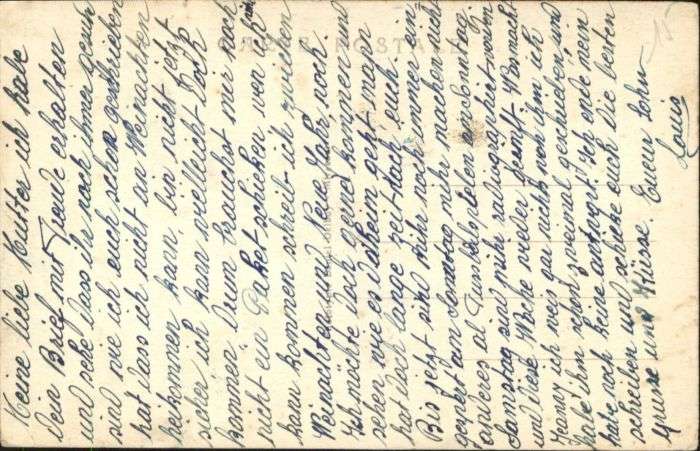 CARTE POSTALE
15
Meine liebe Mutter ich habe
Dein Brief mit Freude erhalten
und sehe dass ihr noch immer gesund
sind wie ich euch schon geschrieben
hat dass ich nicht an Weinachten
heikommen kann, bin nicht jetz
sicher ich kann vielleicht doch
kommen drum brauchst mir noch
nicht ein Paket schicken wen ich
kann kommen schreib ich zwischen
Weinachten und Neue Jahr, noch.
Ich möchte doch gerne kommen und
sehen wie es daheim geht man
hat doch lange zeit nach euch.
Bis jetzt sind mihr noch immer ein
gespert am Sonntag mihr machen nicht
anderes al Fussballspielen
Samstag sind mihr
und diese Woche wieder
Jeany ich weis gar nicht noch ihm ich
habe ihm schon zweimal geschrieben und
habe noch keine antwort. Ich ende mein
schreiben und schliese euch die besten
Grüsse und Küsse. Euern Sohn
Louis